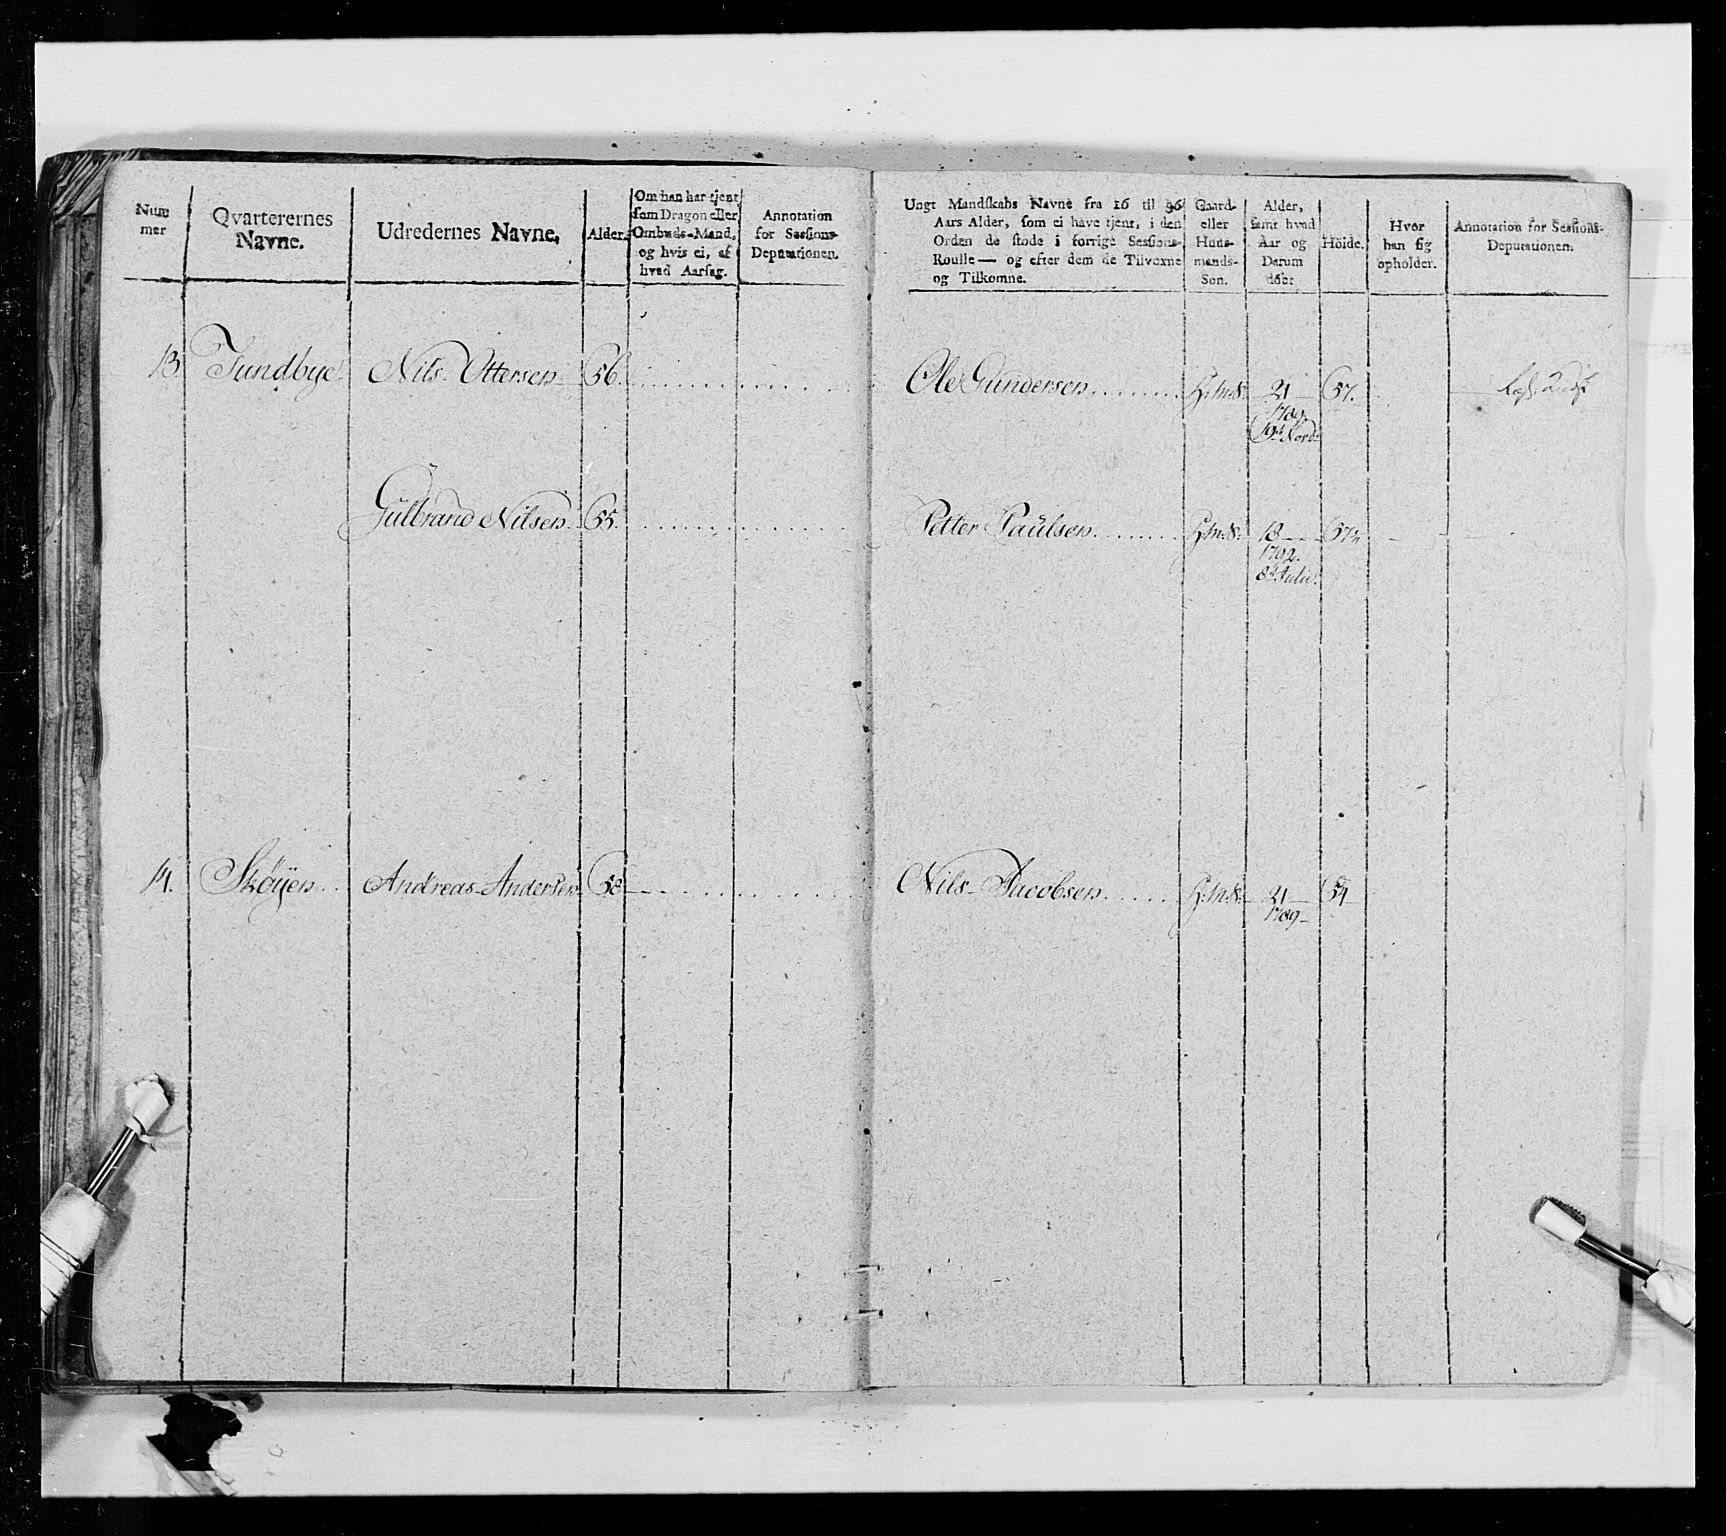 Num
mer
Qvarterernes
Navne.
Udredernes Navne.
Alder.
Om han har tjent
som Dragon eller
Ombuds-Mand,
og hvis ei, af
hvad Aarsag.
Annotation
for Sessions-
Deputationen.
Ungt Mandskabs Navne fra 16 til 36
Aars Alder, som ei have tjent, i den
Orden de stode i forrige Sessions-
Roulle — og efter dem de Tilvoxne
og Tilkomne.
Gaard-
eller
Huus-
mands-
Søn.
Alder,
samt hvad
Aar og
Datum
døbt
Höide.
Hvor
han sig
opholder.
Annotation for Sessions-
Deputationen.
13. Tundbye. Nils Ottersen 56. Ole Gundersen. H:m:S: 21 57.
1789.
19de Novb:
Gulbrand Nilsen. 55. Petter Paulsen. H:m:S: 18 57½
1792.
8de Julii.
14. Skøyen. Andreas Andersen 58 Nils Jacobsen. H:m:S: 21 54
1789